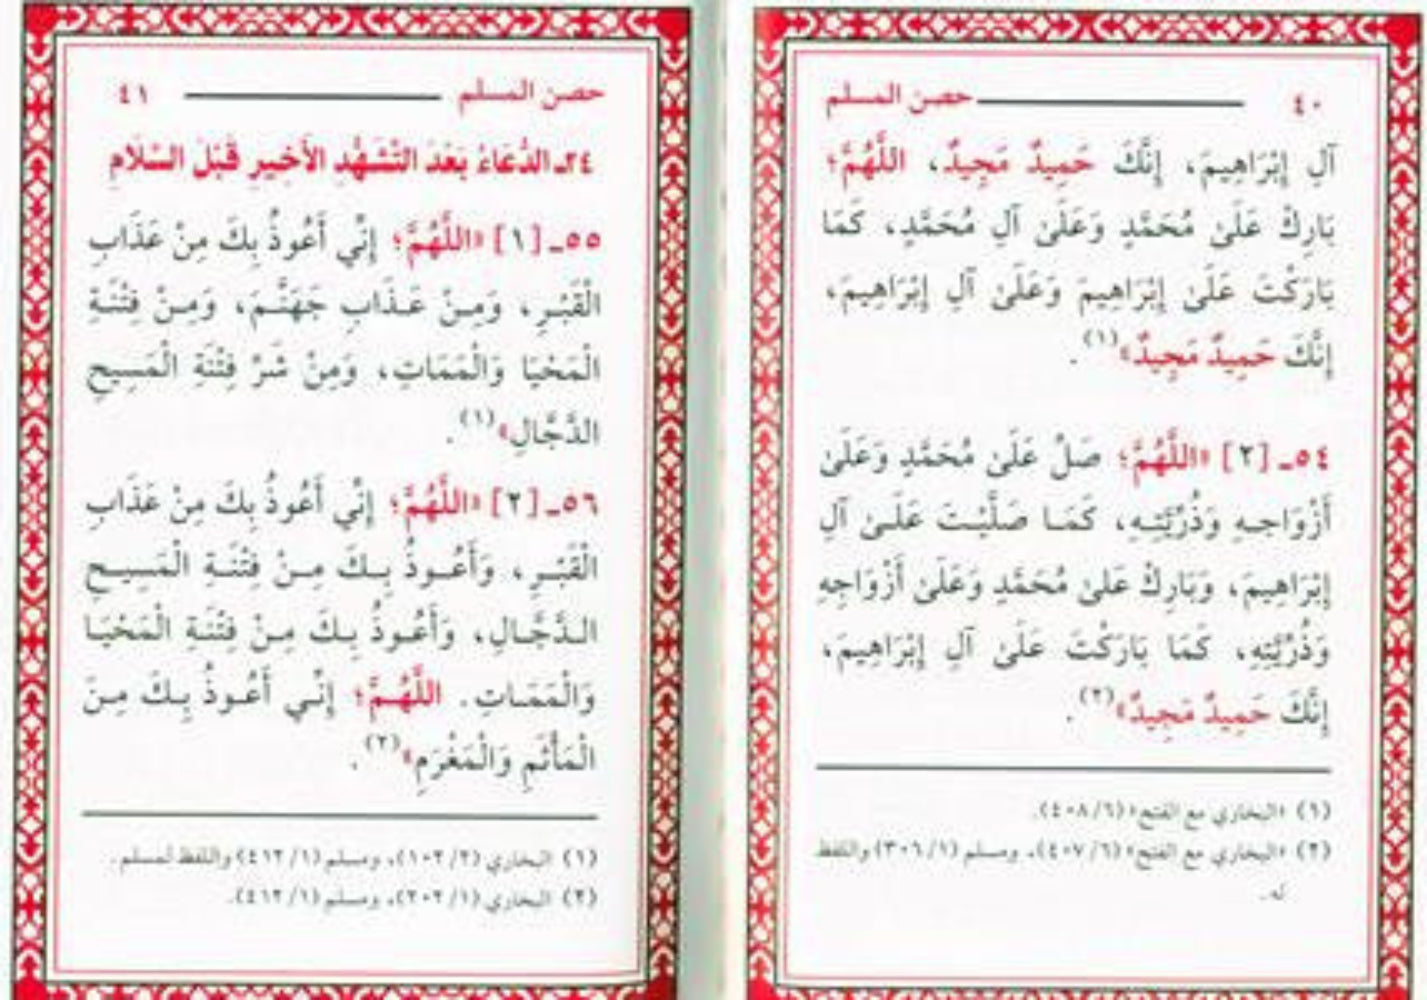 ٤٠ حصن المسلم
آلِ إِبْرَاهِيمَ، إِنَّكَ حَمِيدٌ مَجِيدٌ، اللَّهُمَّ؛
بَارِكْ عَلَىٰ مُحَمَّدٍ وَعَلَىٰ آلِ مُحَمَّدٍ، كَمَا
بَارَكْتَ عَلَىٰ إِبْرَاهِيمَ وَعَلَىٰ آلِ إِبْرَاهِيمَ،
إِنَّكَ حَمِيدٌ مَجِيدٌ»(١).
٥٤ـ [٢] «اللَّهُمَّ؛ صَلِّ عَلَىٰ مُحَمَّدٍ وَعَلَىٰ
أَزْوَاجِهِ وَذُرِّيَّتِهِ، كَمَا صَلَّيْتَ عَلَىٰ آلِ
إِبْرَاهِيمَ، وَبَارِكْ عَلىٰ مُحَمَّدٍ وَعَلَىٰ أَزْوَاجِهِ
وَذُرِّيَّتِهِ، كَمَا بَارَكْتَ عَلَىٰ آلِ إِبْرَاهِيمَ،
إِنَّكَ حَمِيدٌ مَجِيدٌ»(٢).
(١) «البخاري مع الفتح» (٦/ ٤٠٨).
(٢) «البخاري مع الفتح» (٦/ ٤٠٧)، ومسلم (١/ ٣٠٦) واللفظ
له.
حصن المسلم ٤١
٢٤ـ الدُّعَاءُ بَعْدَ التَّشَهُّدِ الأَخِيرِ قَبْلَ السَّلَامِ
٥٥ـ [١] «اللَّهُمَّ؛ إِنِّي أَعُوذُ بِكَ مِنْ عَذَابِ
الْقَبْرِ، وَمِنْ عَذَابِ جَهَنَّمَ، وَمِنْ فِتْنَةِ
الْمَحْيَا وَالْمَمَاتِ، وَمِنْ شَرِّ فِتْنَةِ الْمَسِيحِ
الدَّجَّالِ»(١).
٥٦ـ [٢] «اللَّهُمَّ؛ إِنِّي أَعُوذُ بِكَ مِنْ عَذَابِ
الْقَبْرِ، وَأَعُوذُ بِكَ مِنْ فِتْنَةِ الْمَسِيحِ
الدَّجَّالِ، وَأَعُوذُ بِكَ مِنْ فِتْنَةِ الْمَحْيَا
وَالْمَمَاتِ. اللَّهُمَّ؛ إِنِّي أَعُوذُ بِكَ مِنَ
الْمَأْثَمِ وَالْمَغْرَمِ»(٢).
(١) البخاري (٢/ ١٠٢)، ومسلم (١/ ٤١٢) واللفظ لمسلم.
(٢) البخاري (١/ ٢٠٢)، ومسلم (١/ ٤١٢).